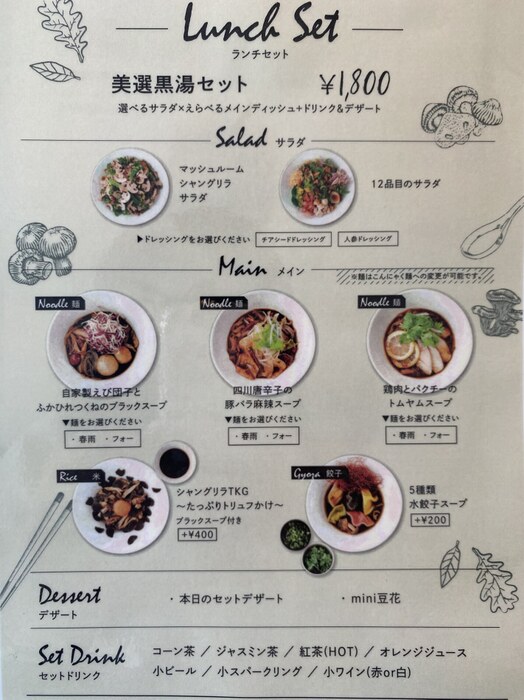 Lunch Set
ランチセット
美選黒湯セット ¥1,800
選べるサラダ×えらべるメインディッシュ+ドリンク&デザート
Salad サラダ
マッシュルーム
シャングリラ
サラダ
12品目のサラダ
▶ドレッシングをお選びください チアシードドレッシング 人参ドレッシング
Main メイン
※麺はこんにゃく麺への変更が可能です。
Noodle 麺
自家製えび団子と
ふかひれつくねのブラックスープ
▼麺をお選びください
・春雨 ・フォー
Noodle 麺
四川唐辛子の
豚バラ麻辣スープ
▼麺をお選びください
・春雨 ・フォー
Noodle 麺
鶏肉とパクチーの
トムヤムスープ
▼麺をお選びください
・春雨 ・フォー
Rice 米
シャングリラTKG
～たっぷりトリュフかけ～
ブラックスープ付き
+¥400
Gyoza 餃子
5種類
水餃子スープ
+¥200
Dessert
デザート
・本日のセットデザート ・mini豆花
Set Drink
セットドリンク
コーン茶 / ジャスミン茶 / 紅茶(HOT) / オレンジジュース
小ビール / 小スパークリング / 小ワイン(赤or白)